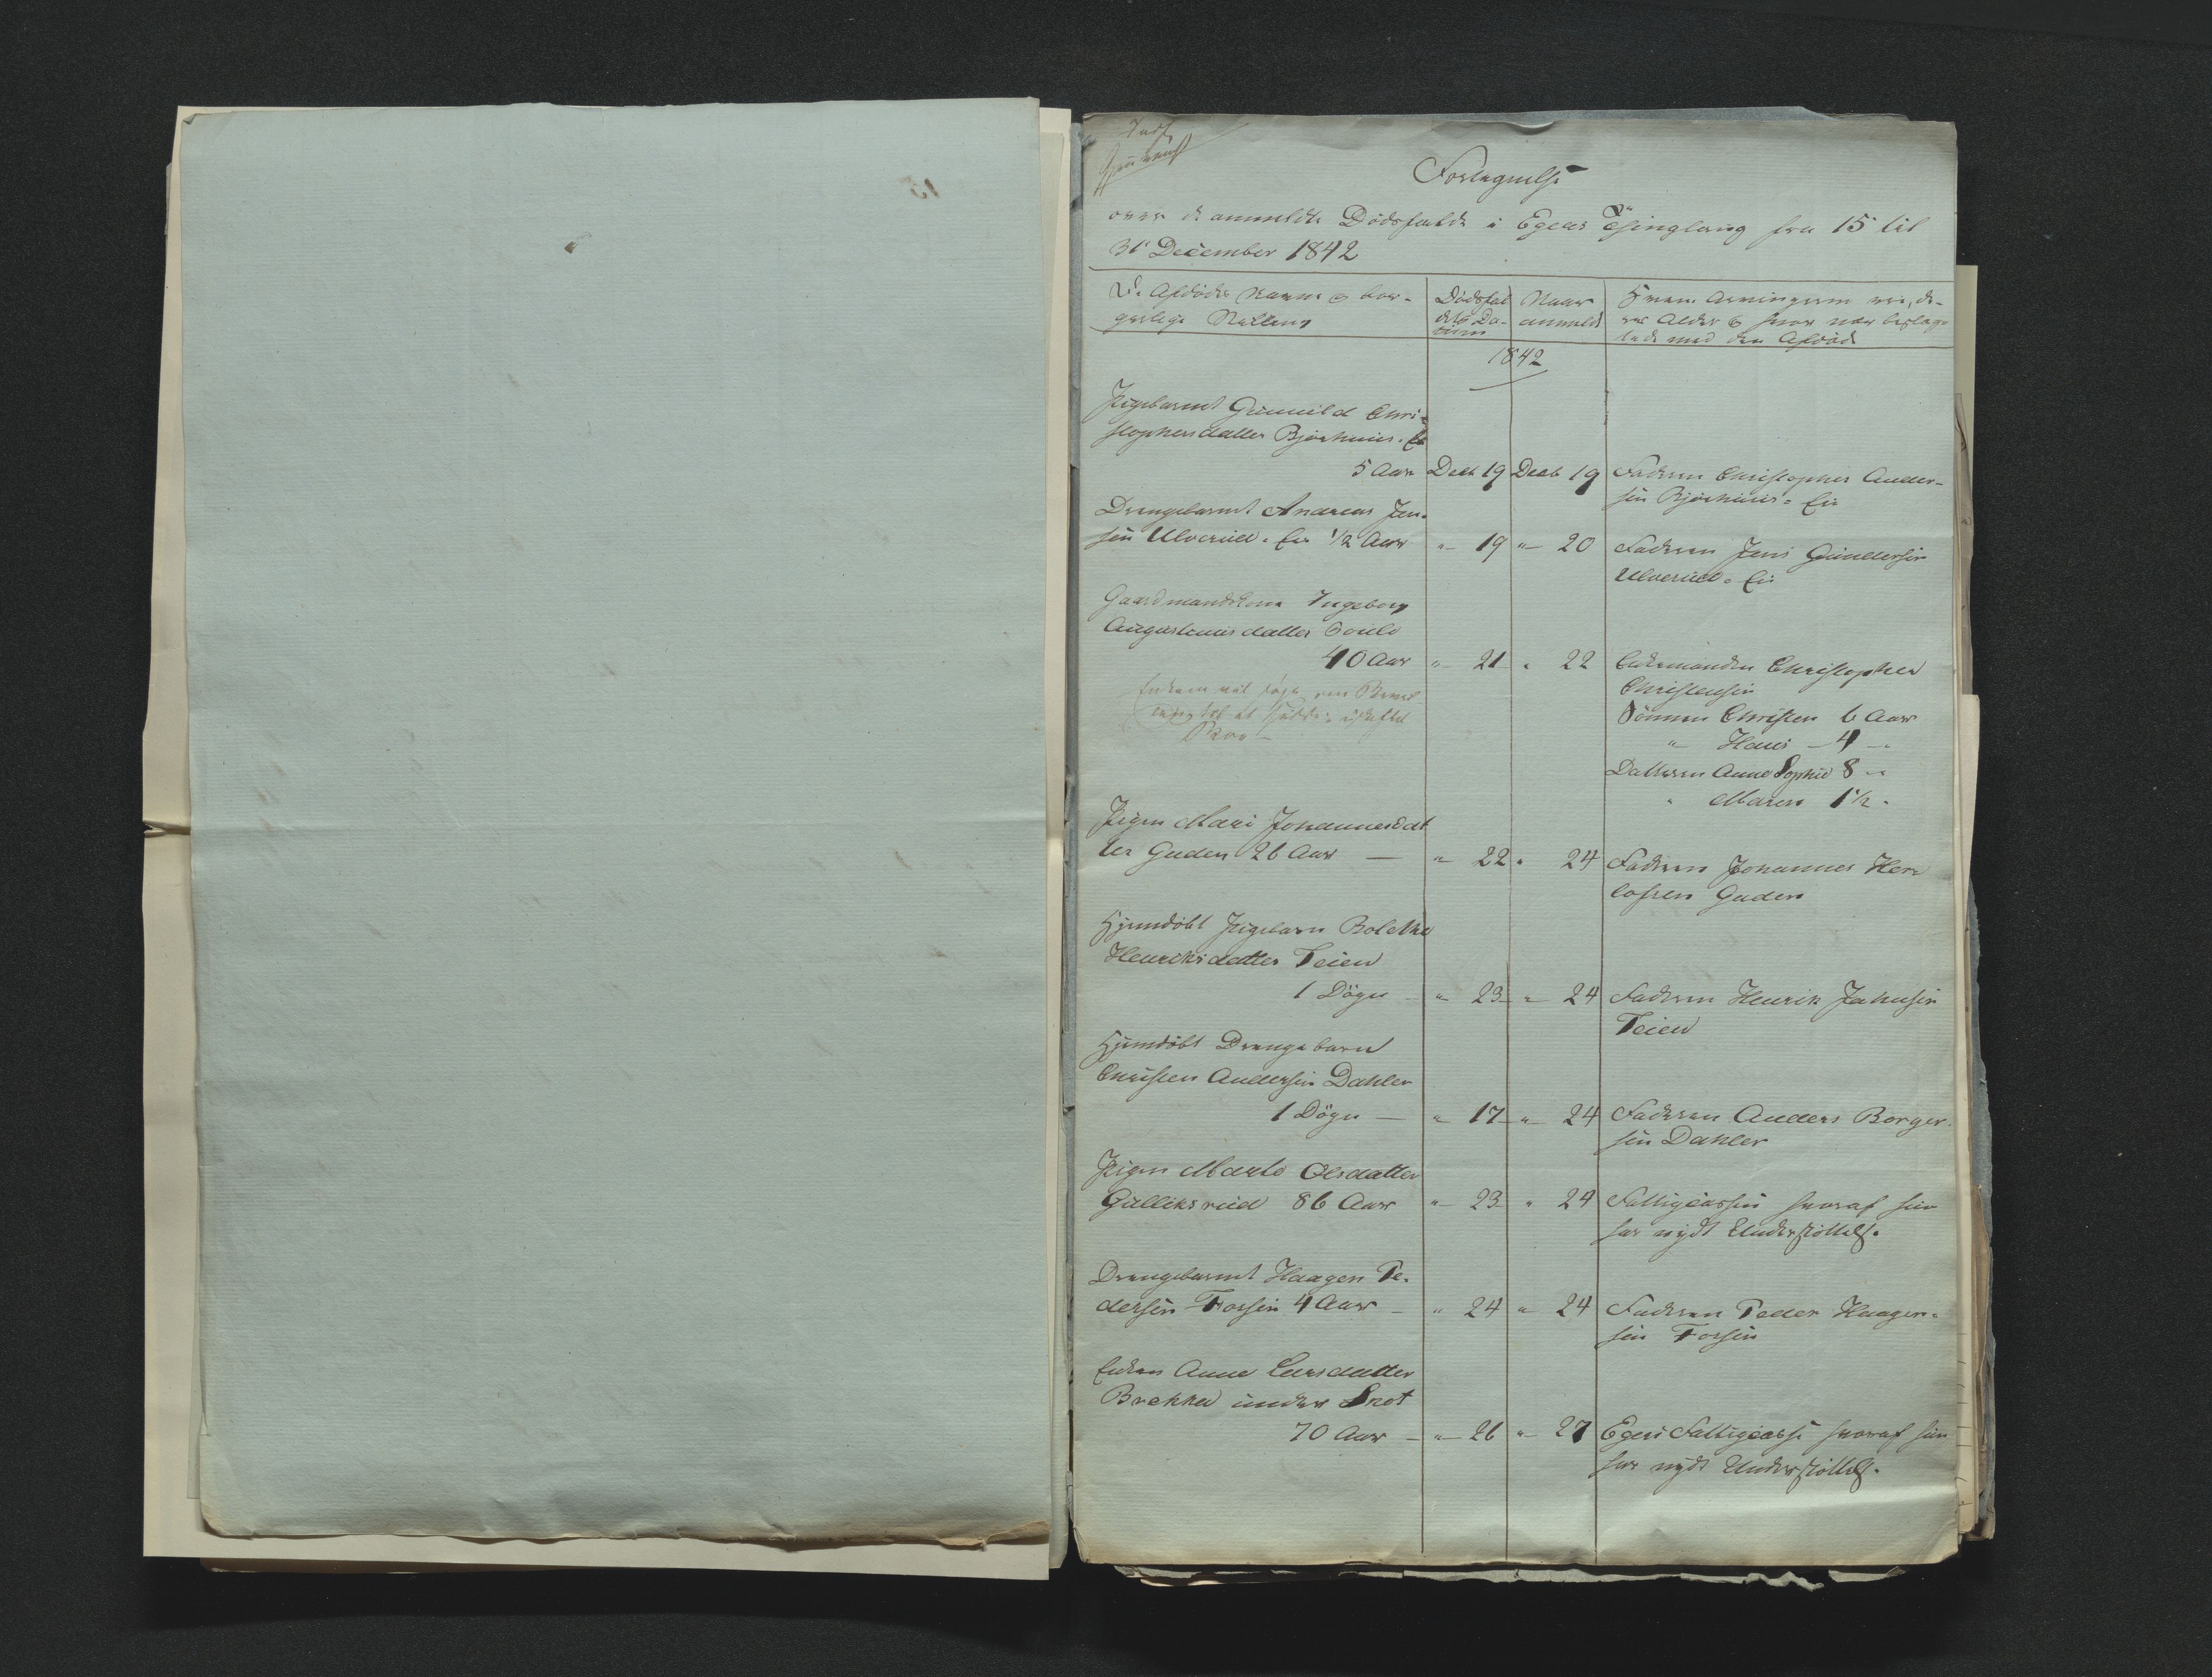 Fortegnelse
over de anmeldte Dödsfalde i Egers Thinglaug fra 15 til
31 December 1842
De Afdödes Navne & bor-
gerlige Stilling
Dödsfal
dets Da-
tum
Naar
anmeldt
Hvem Arvingerne ere, de-
res Alder & hvor nær beslæg-
tede med den Afdöde
1842
Pigebarnet Gunild Chri-
stophersdatter Bjørhuus-Eie
5 Aar Decb 19 Decb 19 Faderen Christopher Ander-
sen Bjørhuus-Eie
Drengebarnet Andreas Jen-
sen Ulverud-Eie 1/2 Aar " 19 " 20 Faderen Jens Gundersen
Ulverud-Eie
Gaardmandskone Ingeborg
Augustinusdatter
40 Aar " 21 " 22 Enkemanden Christopher
Christensen
Sönnen Christen 6 Aar
" Hans 4 "
Datteren Anne Sophie 8 "
" Maren 1 1/2 "
Enkem vil søge om Bevil
ling til at sidde i uskiftet
Boe
Pigen Mari Johannesdat
ter Guden 26 Aar — " 22 " 24 Faderen Johannes Her
lofsen Guden
Hjemdöbt Pigebarn Bolethe
Henriksdatter Teien
1 Dögn " 23 " 24 Faderen Henrik Jahnsen
Teien
Hjemdöbt Drengebarn
Christen Andersen Dahler
1 Dögn — " 17 " 24 Faderen Anders Borger-
sen Dahler
Pigen Marte Olsdatter
Gulliksrud 86 Aar " 23 " 24 Fattigcassen hvoraf hun
har nydt Understöttelse.
Drengebarnet Haagen Pe-
dersen Fossen 4 Aar — " 24 " 24 Faderen Peder Haagen-
sen Fossen
Enken Anne Larsdatter
Brekke under Skot
70 Aar — " 26 " 27 Egers Fattigcasse hvoraf hun
har nydt Understöttelse.